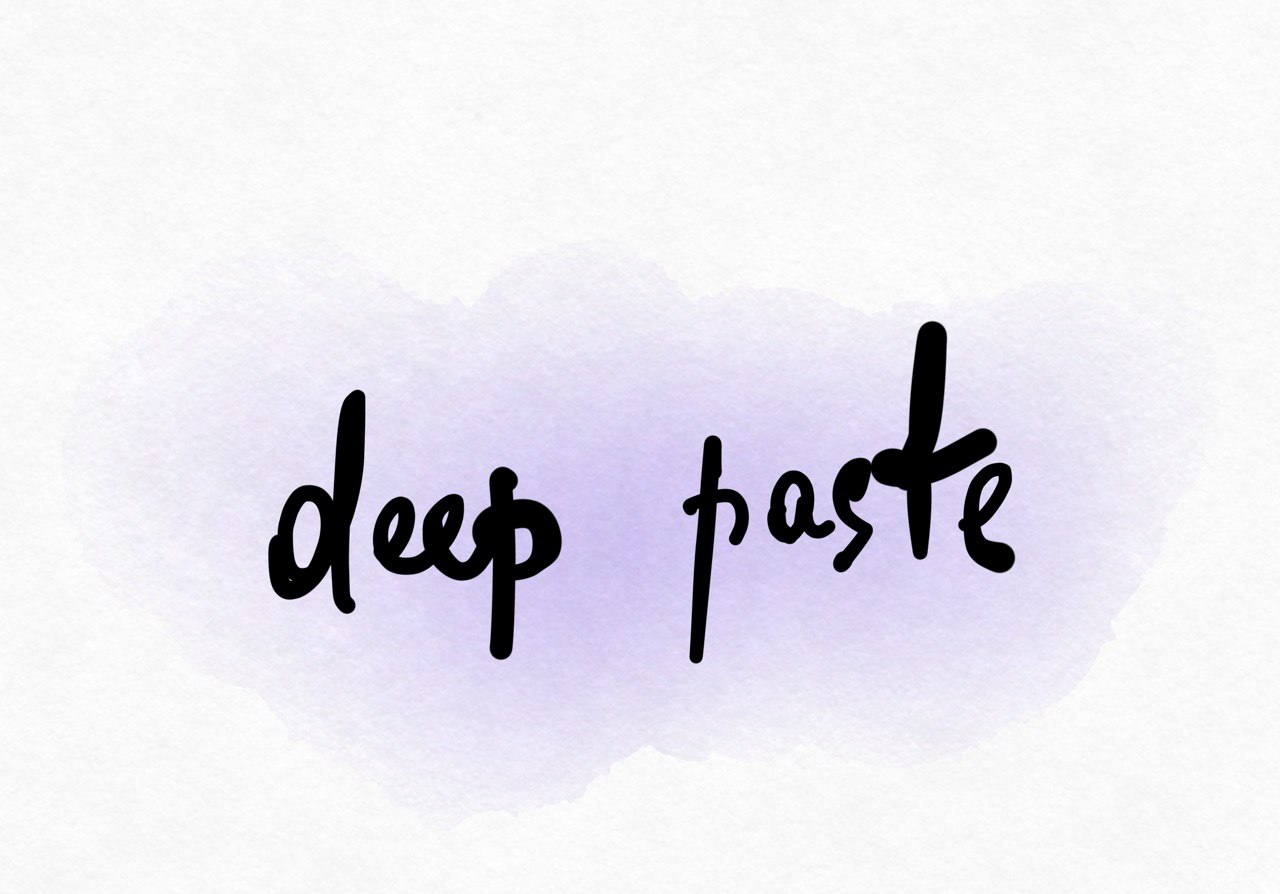 deep paste